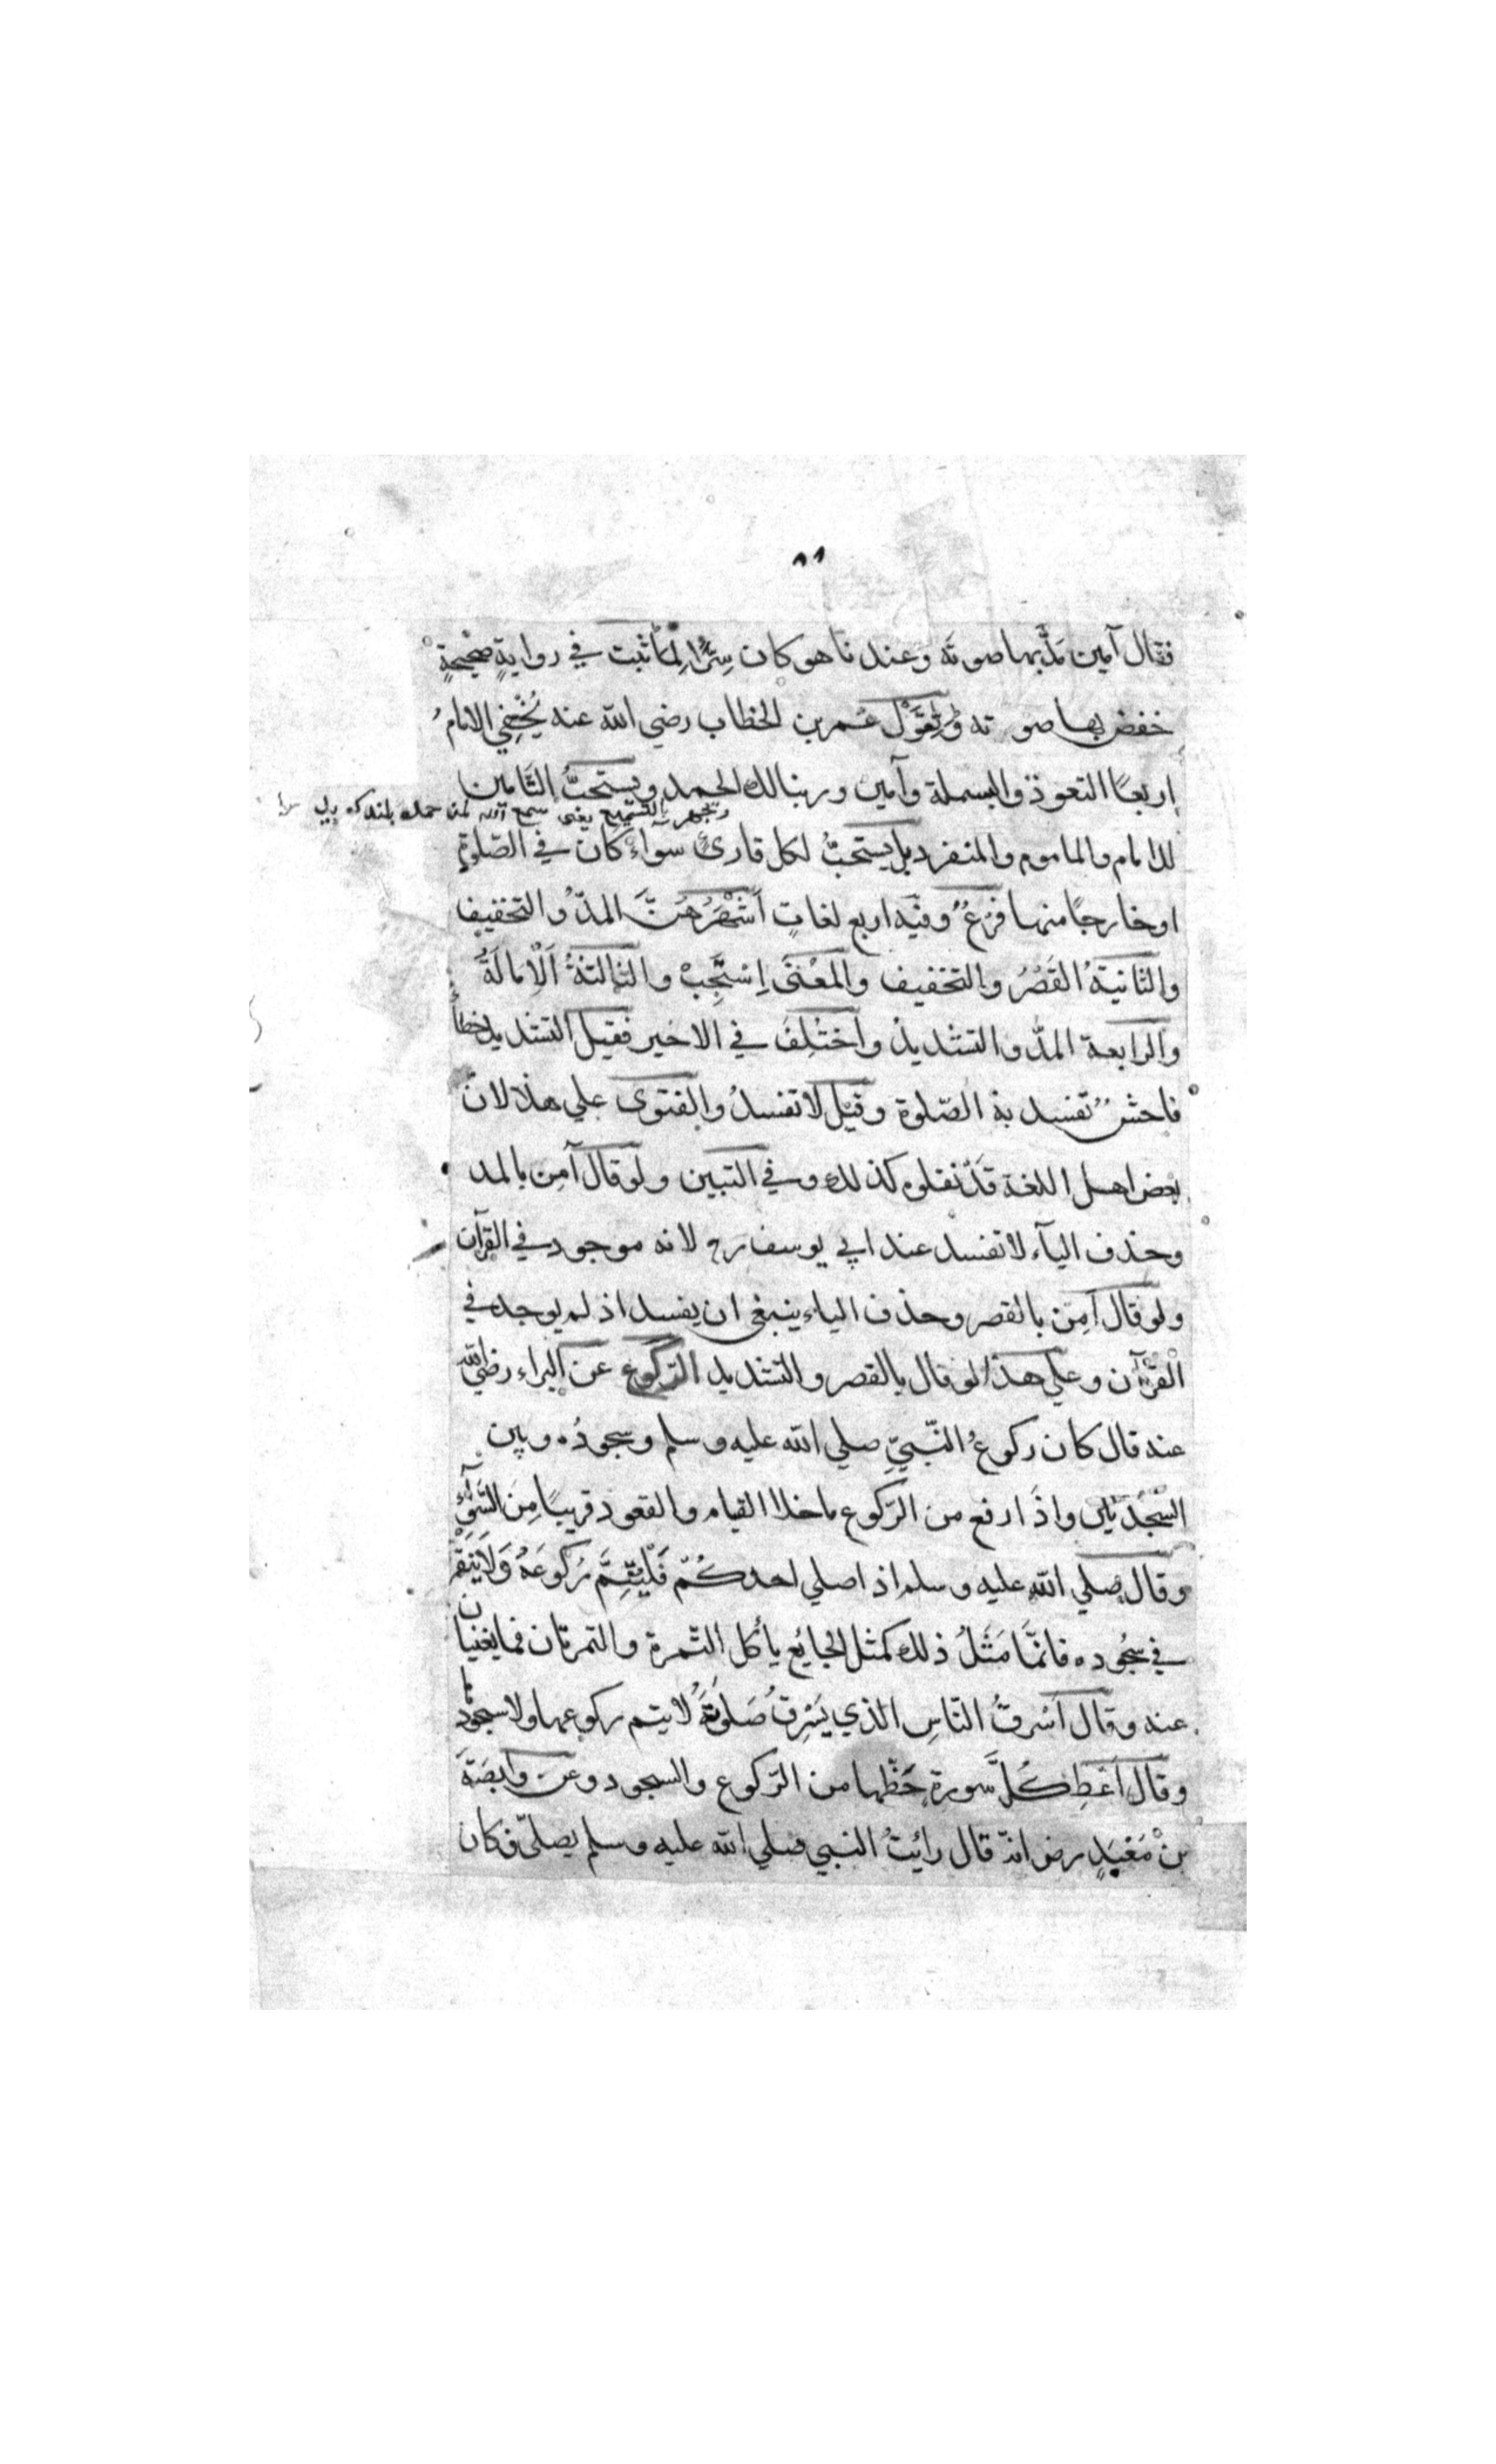 ٨١
فقال آمين مَدَّ بها صوته وعندنا هو كان سِرًّا لِمَا ثبت في روايةٍ صحيحةٍ
خفض بها صوته ولِقَوْل عمر بن الخطاب رضي الله عنه يُخْفِي الامامُ
اربعًا التعوذ والبسملة وآمين وربنا لك الحمد ويستحبُّ التَّامين
ويجهر بالتسميع يعنى سمع الله لمن حمده بلند كه
للامام والماموم والمنفرد بل يستحبُّ لكل قارئ سواءٌ كان في الصّلوةِ
او خارجًا منها فرْعٌ وفيه اربع لغاتٍ اَشْهَرُهُنَّ المدّ والتخفيف
والثانيةُ القَصْرُ والتخفيف والمَعْنىَ اِسْتَجِبْ والثالثةُ اَلْاِمالَةُ
والرابعة المدّ والتشديدُ واختُلِفَ في الاخير فقيل التشديد خطأٌ
فاحشٌ تفسد به الصّلوة وقيل لا تفسدُ والفتوى علي هذا لانّ
بعض اهل اللغة قَدْ نقلوه كذلك وفي التبين ولو قال آمِن بالمد
وحذف اليآء لا تفسد عند ابي يوسف رح لانه موجود في القرآن
ولو قال اَمِن بالقصر وحذف الياء ينبغي ان يفسد اذ لم يوجد في
القرْآن وعلي هذا لو قال بالقصر والتشديد الرّكوع عن البراء رضي الله
عنه قال كان ركوعُ النّبيّ صلي الله عليه وسلم وسجودُه وبين
السّجْدَتين واذَا رفع من الرّكوع ماخلا القيام والقعود قريبًا مِنَ السَّوَآءِ
وقال صلي الله عليه وسلم اذا صلي احدكُمْ فَلْيُتِمَّ رُكوعَهُ وَلَا يَنْقُر
في سجُوده فانمَّا مَثَلُ ذلك كمثل الجائع يأكل التّمرة والتمرتان فما يغنيان
عنه وقال اَسْرقُ النّاسِ الذي يَسْرِقُ صَلوتَهُ لا يتم ركوعها ولا سجودها
وقال اَعْطِ كُلَّ سورة حَظّها من الرّكوع والسجود وعن وابِصَةَ
بنْ مَعْبَدٍ رض انّه قال رأيتُ النبي صلي الله عليه وسلم يصلّي فكان